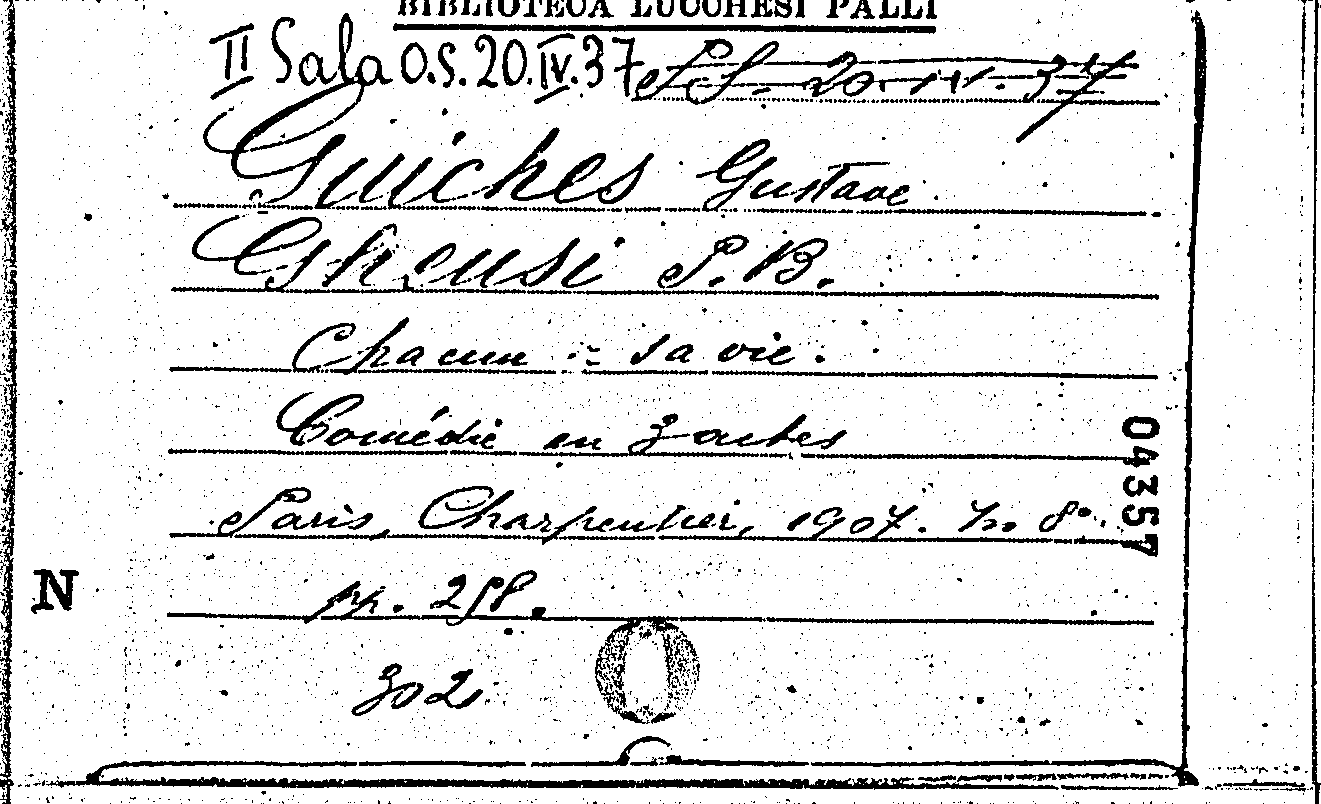 BIBLIOTECA LUCCHESI PALLI
II Sala O.S. 20.IV.37 S.S. 20.IV.37
Guiches Gustave
Gheusi P. B.
Chacun sa vie.
Comédie en 3 actes
Paris, Charpentier, 1907. In 8º.
pp. 258.
302
N
04357